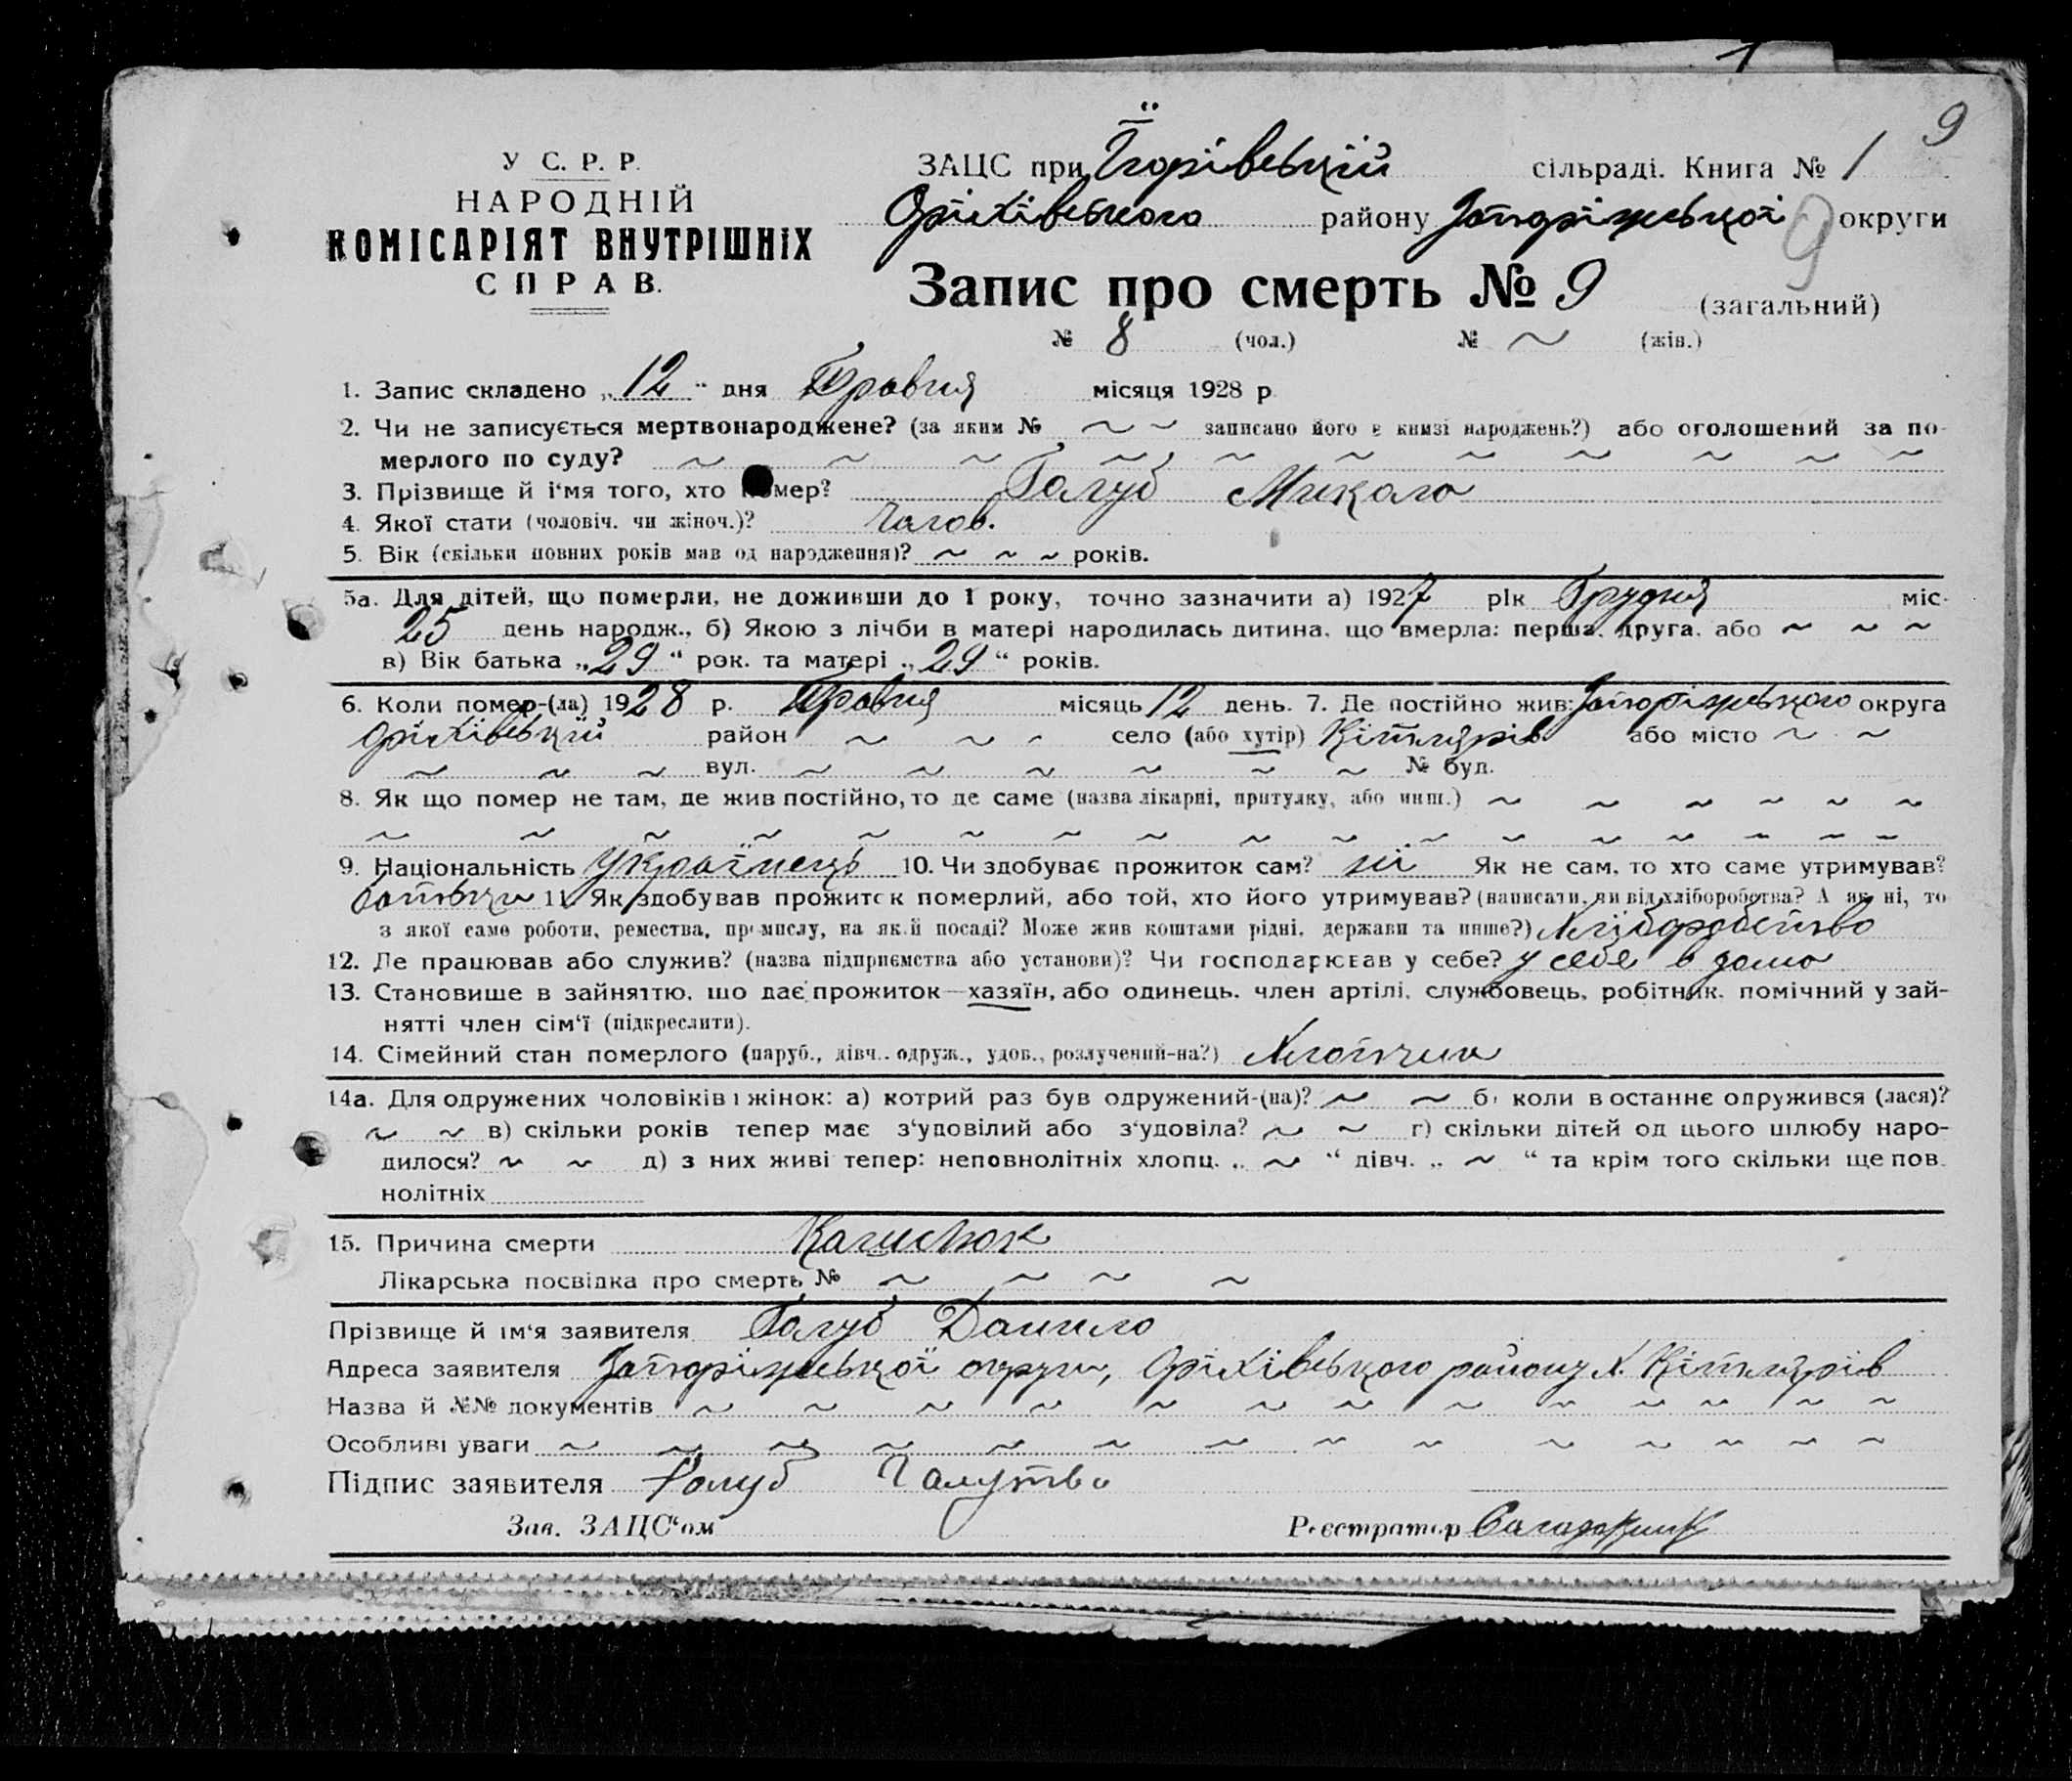 1
9
У С. Р. Р.
НАРОДНІЙ
КОМІСАРІЯТ ВНУТРІШНІХ
СПРАВ.
ЗАЦС при сільраді. Книга № 1
Оріхівського району Запоріжської округи
9
Запис про смерть № 9 (загальний)
№ 8 (чол.) № ~ (жін.)
1. Запис складено „12“ дня Травня місяця 1928 р.
2. Чи не записується мертвонароджене? (за яким № ~ ~ записано його в книзі народжень?) або оголошений за по-
мерлого по суду? ~ ~ ~ ~ ~ ~ ~ ~ ~ ~ ~
3. Прізвище й і‘мя того, хто помер? Голуб Микола
4. Якої стати (чоловіч. чи жіноч.)? Чолов.
5. Вік (скільки повних років мав од народження)? ~ ~ ~ років.
5а. Для дітей, що померли, не доживши до 1 року, точно зазначити а) 1927 рік Грудня міс.
25 день народж., б) Якою з лічби в матері народилась дитина, що вмерла: перша, друга, або ~ ~ ~
в) Вік батька „29“ рок. та матері „29“ років.
6. Коли помер-(ла) 1928 р. Травня місяць 12 день. 7. Де постійно жив: Запоріжського округа
Оріхівський район ~ ~ ~ село (або хутір) Кітлярів або місто ~ ~
~ ~ ~ вул. ~ ~ ~ ~ ~ ~ № буд.
8. Як що помер не там, де жив постійно, то де саме (назва лікарні, притулку, або инш.) ~ ~ ~ ~ ~ ~
~ ~ ~ ~ ~ ~ ~ ~ ~ ~ ~ ~ ~ ~ ~ ~ ~
9. Національність Українець 10. Чи здобуває прожиток сам? ні Як не сам, то хто саме утримував?
батьки 11. Як здобував прожиток померлий, або той, хто його утримував? (написати, чи від хліборобства? А як ні, то
з якої саме роботи, ремества, промислу, на якій посаді? Може жив коштами рідні, держави та инше?) Хліборобство
12. Де працював або служив? (назва підприємства або установи)? Чи господарював у себе? у себе в дома
13. Становище в зайняттю, що дає прожиток—хазяїн, або одинець, член артілі, службовець, робітник, помічний у зай-
нятті член сім‘ї (підкреслити).
14. Сімейний стан померлого (паруб., дівч., одруж., удов., розлучений-на?) Хлопчик
14а. Для одружених чоловіків і жінок: а) котрий раз був одружений-(на)? ~ ~ б) коли в останнє одружився (лася)?
~ ~ в) скільки років тепер має з‘удовілий або з‘удовіла? ~ ~ г) скільки дітей од цього шлюбу наро-
дилося? ~ ~ д) з них живі тепер: неповнолітніх хлопц. „ ~ “ дівч. „ ~ “ та крім того скільки ще пов.
нолітніх
15. Причина смерти Кашлюк
Лікарська посвідка про смерть № ~ ~ ~ ~
Прізвище й ім‘я заявителя Голуб Данило
Адреса заявителя Запоріжської округи, Оріхівського району х. Кітлярів
Назва й №№ документів ~ ~ ~ ~ ~ ~ ~ ~ ~ ~ ~ ~ ~
Особливі уваги ~ ~ ~ ~ ~ ~ ~ ~ ~ ~ ~ ~ ~ ~
Підпис заявителя Голуб
Зав. ЗАЦС‘ом Реєстратор